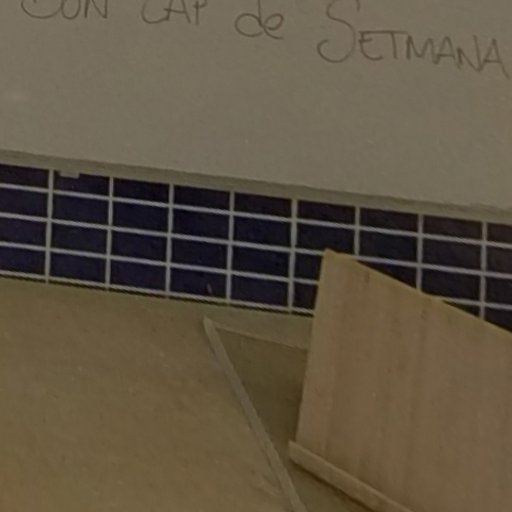 BON CAP de SETMANA